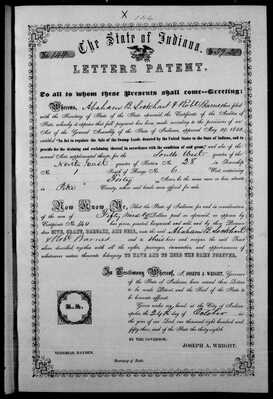 X 144
The State of Indiana.
No. 144
LETTERS PATENT.
To all to whom these Presents shall come—Greeting:
Whereas, Abraham B Lockhart & Robt Barnes has filed
with the Secretary of State of the State aforesaid the Certificate of the Auditor of
State whereby it appears that full payment has been made according to the provisions of an
Act of the General Assembly of the State of Indiana, approved May 29, 1852,
entitled "An Act to regulate the Sale of the Swamp Lands donated by the United States to the State of Indiana, and to
provide for the draining and reclaiming thereof in accordance with the condition of said grant," and also of the
several Acts supplemental thereto, for the South West quarter of the
North East quarter of Section No. 28 in Township
No. 1 South of Range No. 6 West containing
Forty Acres be the same more or less situate
in Pike County, where said lands were offered for sale.
Now Know Ye, That the State of Indiana, for and in consideration
of the sum of Fifty Dollars paid as aforesaid as appears by
Certificate No. has given, granted, bargained and sold, and by these Presents
DOTH GIVE, GRANT, BARGAIN, AND SELL, unto the said Abraham B Lockhart
& Robt Barnes and to their heirs and assigns the said Tract
above described, together with all the rights, privileges, immunities, and appurtenances of
whatsoever nature thereunto belonging TO HAVE AND TO HOLD THE SAME FOREVER.
In Testimony Whereof, I, JOSEPH A. WRIGHT, Governor
of the State of Indiana have caused these Letters
to be made Patent, and the Seal of the State to
be hereunto affixed.
Given under my hand, at the City of Indian-
apolis the 24th day of October in
the year of our Lord one thousand eight hundred and
fifty and of the State the thirty-eighth
BY THE GOVERNOR,
JOSEPH A. WRIGHT.
NEHEMIAH HAYDEN,
Secretary of State.